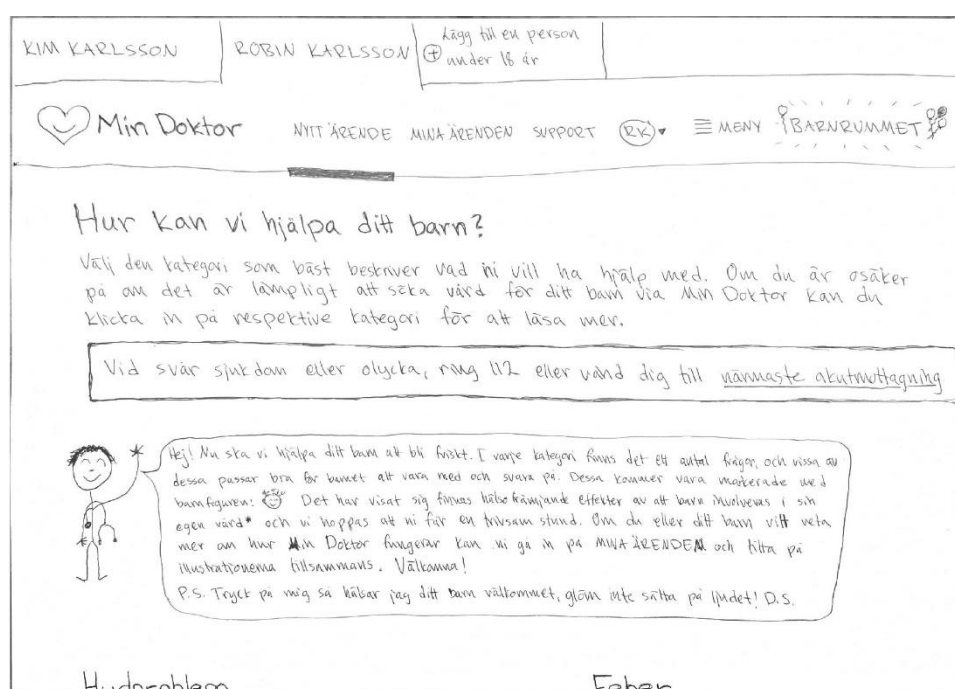 KIM KARLSSON
ROBIN KARLSSON
Lägg till en person
under 18 år
Min Doktor
NYTT ÄRENDE
MINA ÄRENDEN
SUPPORT
RK
MENY
BARNRUMMET
Hur kan vi hjälpa ditt barn?
Välj den kategori som bäst beskriver vad ni vill ha hjälp med. Om du är osäker
på om det är lämpligt att söka vård för ditt barn via Min Doktor kan du
klicka in på respektive kategori för att läsa mer.
Vid svår sjukdom eller olycka, ring 112 eller vänd dig till närmaste akutmottagning
Hej! Nu ska vi hjälpa ditt barn att bli friskt. I varje kategori finns det ett antal frågor, och vissa av
dessa passar bra för barnet att vara med och svara på. Dessa kommer vara markerade med
barnfiguren! Det har visat sig finnas hälsofrämjande effekter av att barn involveras i sin
egen vård* och vi hoppas att ni får en trivsam stund. Om du eller ditt barn vill veta
mer om hur Min Doktor fungerar kan ni gå in på MINA ÄRENDEN och titta på
illustrationerna tillsammans. Välkomna!
P.S. Tryck på mig så hälsar jag ditt barn välkommet, glöm inte sätta på ljudet! D.S.
Hudproblem
Feber